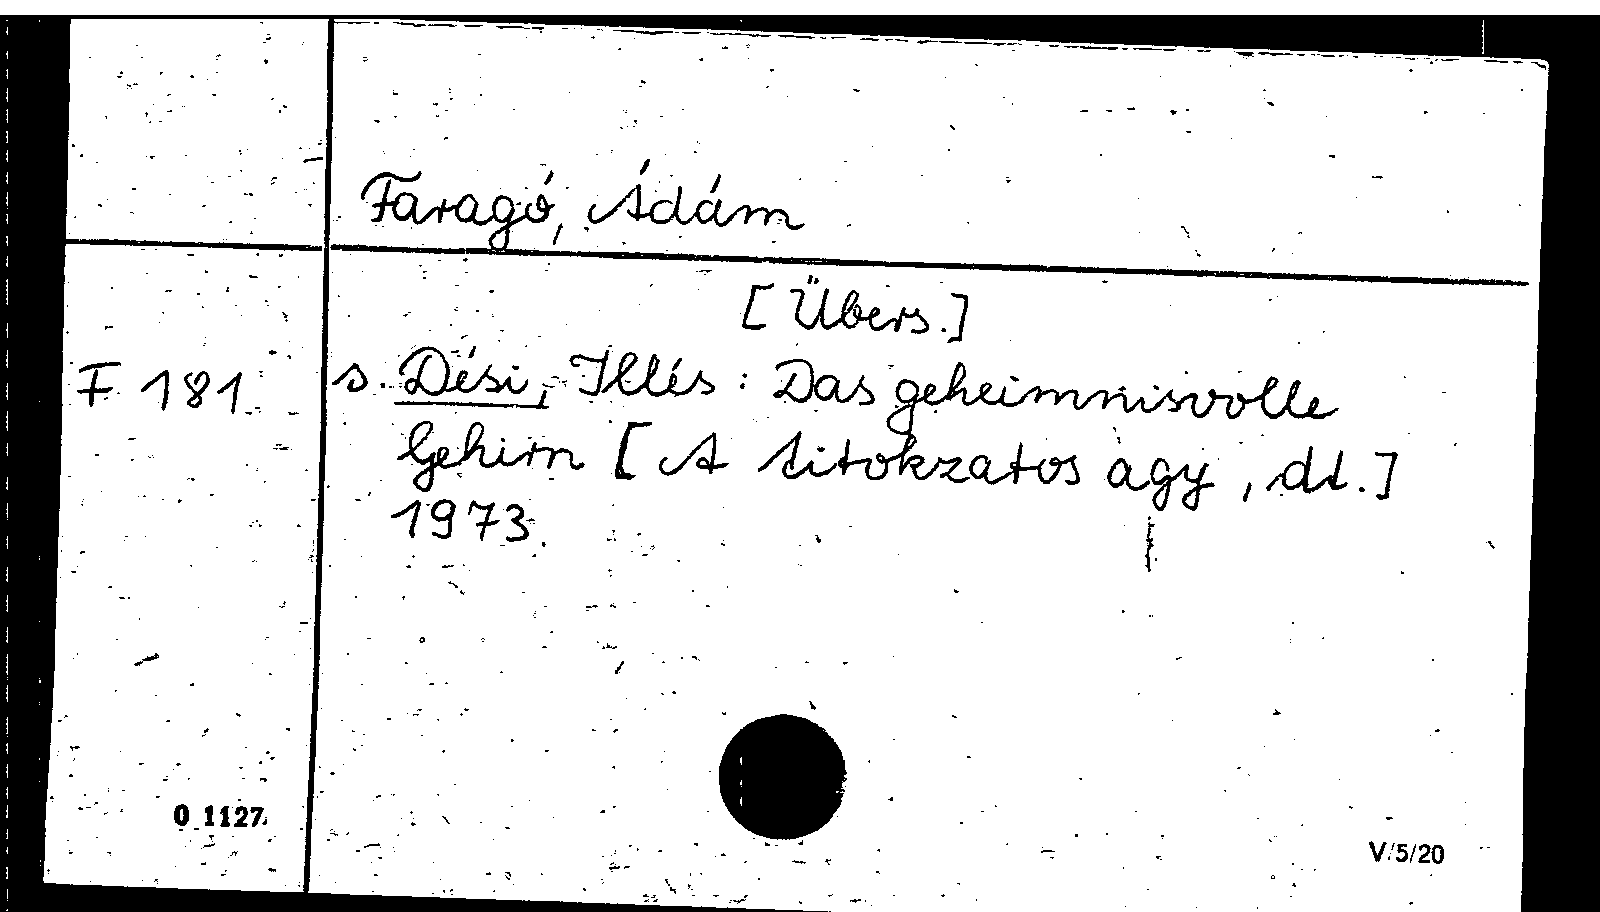 Faragó, Ádám
[Übers.]
F 181 s. Dési, Illés: Das geheimnisvolle
Gehirn [A titokzatos agy, dt.]
1973.
0 1127
V/5/20